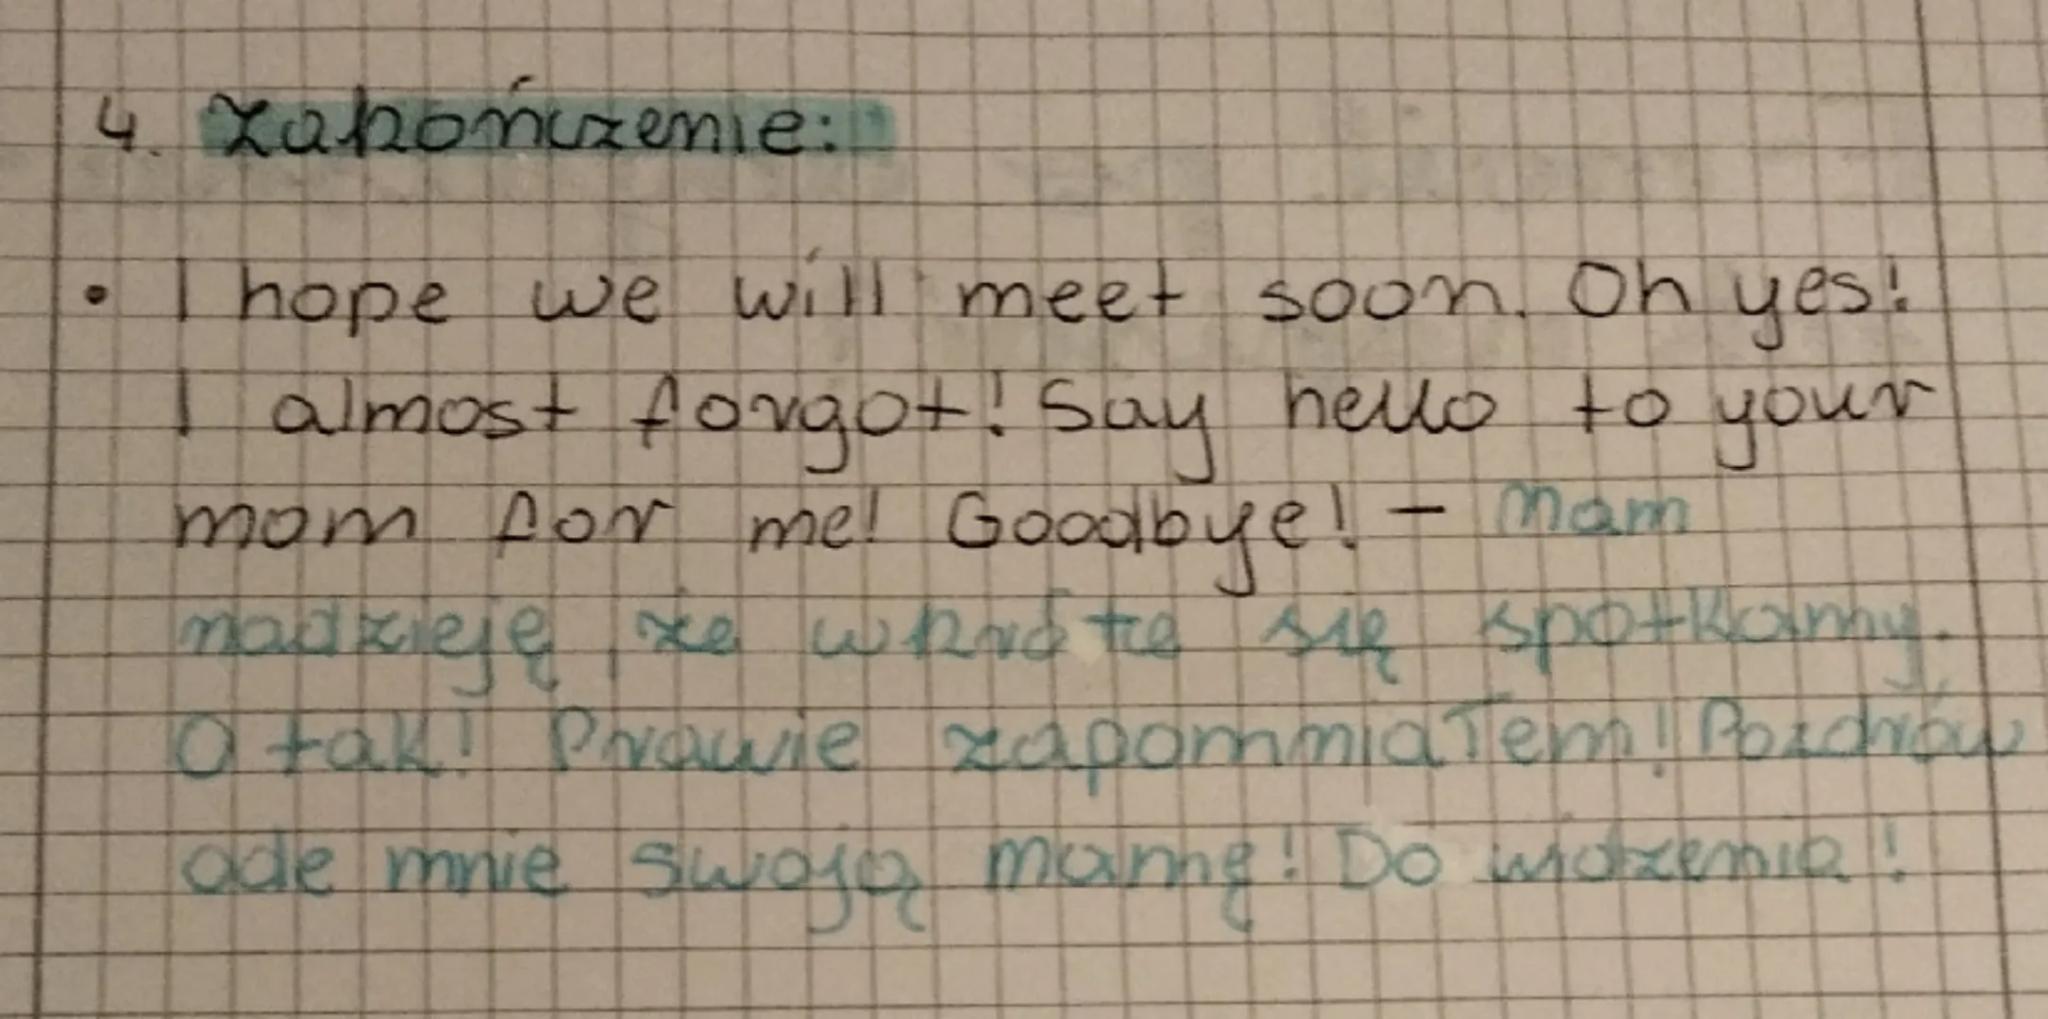 4. Zakończenie:
• I hope we will meet soon. Oh yes!
I almost forgot! Say hello to your
mom for me! Goodbye! - Mam
nadzieję, że wkrótce się spotkamy.
O tak! Prawie zapomniałem! Pozdrów
ode mnie swoją mamę! Do widzenia!